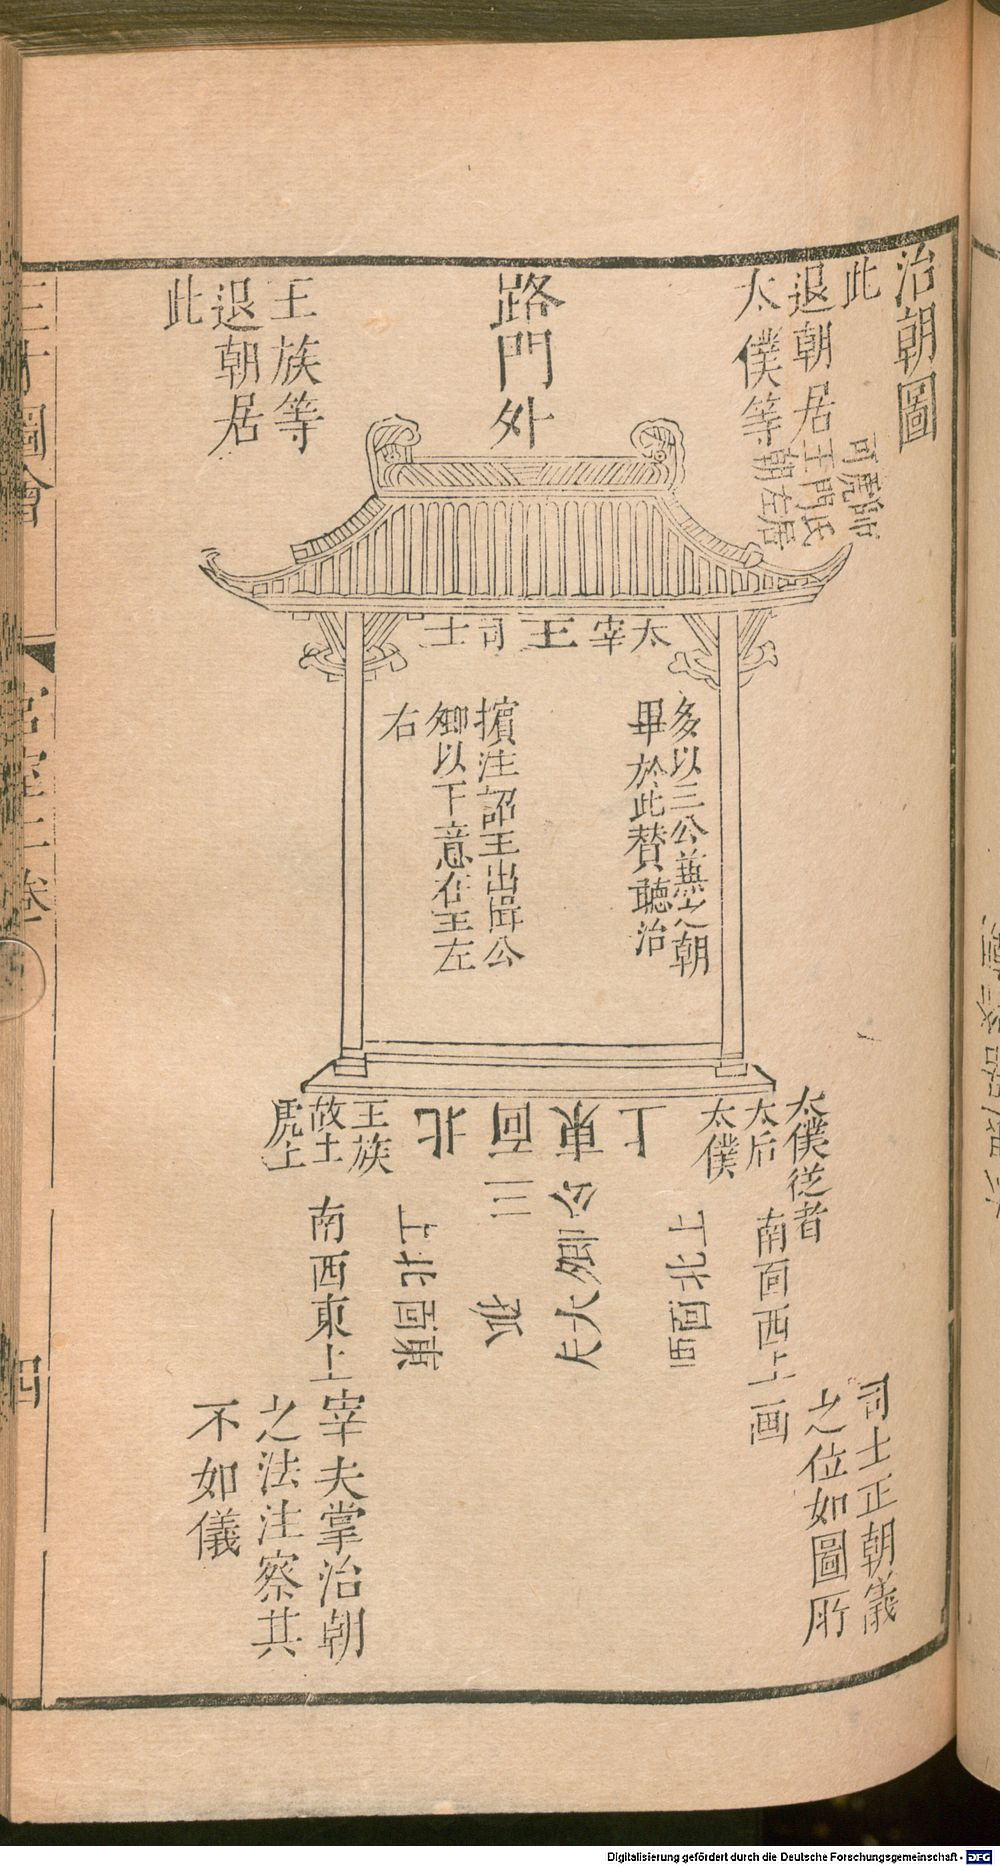 治朝圖
此
退朝居
太僕等
師氏
虎門
司王
朝左居
路門外
王族等
退朝居
此
太宰 王 司士
多以三公兼之朝
畢於此贊聽治
擯注詔王出揖公
卿以下意在王左
右
太僕從者
太后
太僕
南面西上
上東面北
王族
故士
虎士
南西東上
西面北上
三公
卿大夫
東面北上
司士正朝儀
之位如圖所
画
宰夫掌治朝
之法注察其
不如儀
三才圖會
宮室二卷
四
Digitalisierung gefördert durch die Deutsche Forschungsgemeinschaft - DFG